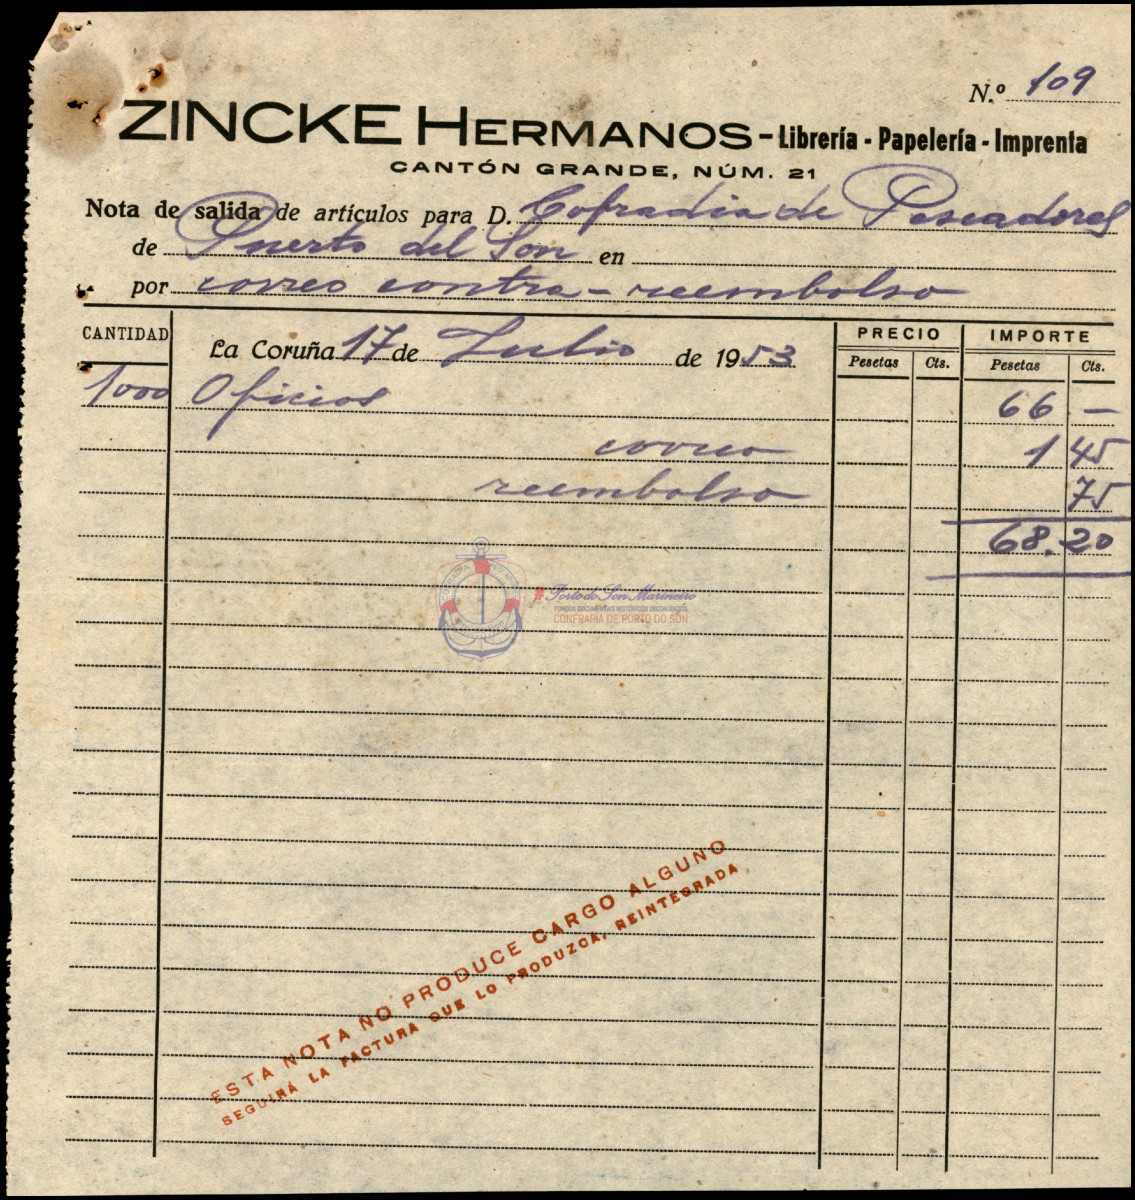 N.º 109
ZINCKE HERMANOS - Librería - Papelería - Imprenta
CANTÓN GRANDE, NÚM. 21
Nota de salida de artículos para D. Cofradia de Pescadores
de Puerto del Son en
por correo contra-reembolso
CANTIDAD La Coruña 17 de Julio de 1953 PRECIO IMPORTE
Pesetas Cts. Pesetas Cts.
1000 Oficios 66 —
correo 1 45
reembolso 75
68.20
Porto do Son Marineiro
FONDOS DOCUMENTAIS HISTÓRICOS DIGITALIZADOS
CONFRARÍA DE PORTO DO SON
ESTA NOTA NO PRODUCE CARGO ALGUNO
SEGUIRÁ LA FACTURA QUE LO PRODUZCA, REINTEGRADA